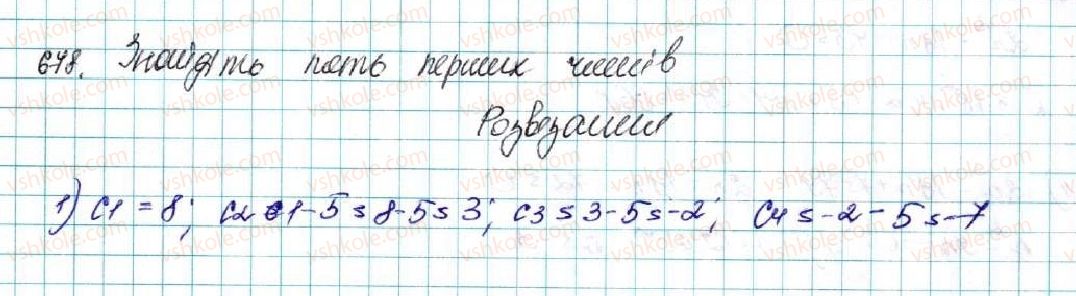 678. Знайдіть пять перших членів
Розвязання
1) c1 = 8; c2 = c1 - 5 = 8 - 5 = 3; c3 = 3 - 5 = -2; c4 = -2 - 5 = -7